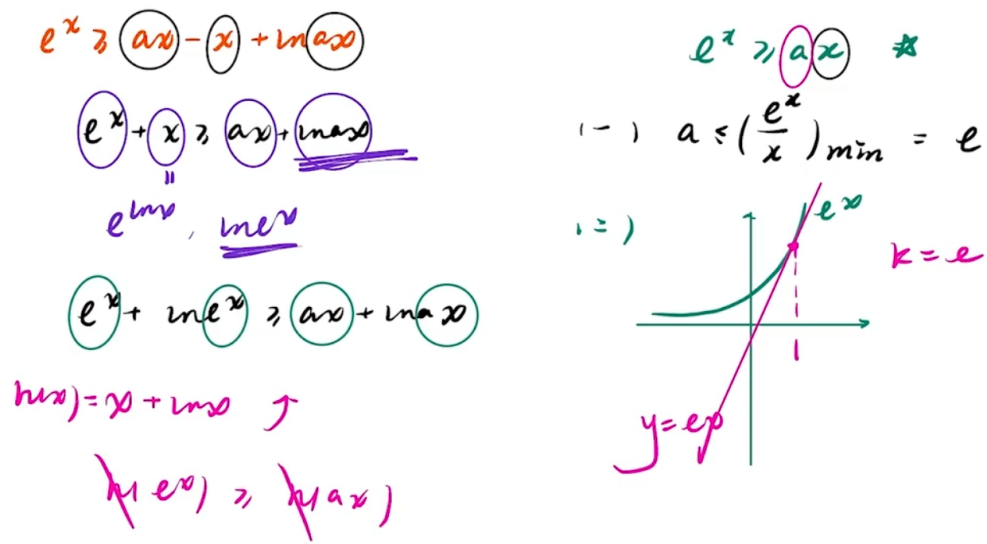 eˣ ≥ ax - x + ln ax
eˣ + x ≥ ax + ln ax
"
e^{ln x} , ln eˣ
eˣ + ln eˣ ≥ ax + ln ax
h(x) = x + ln x ↑
h(eˣ) ≥ h(ax)
eˣ ≥ ax ☆
(一) a ≤ (eˣ/x)min = e
(二)
eˣ
k = e
1
y = ex